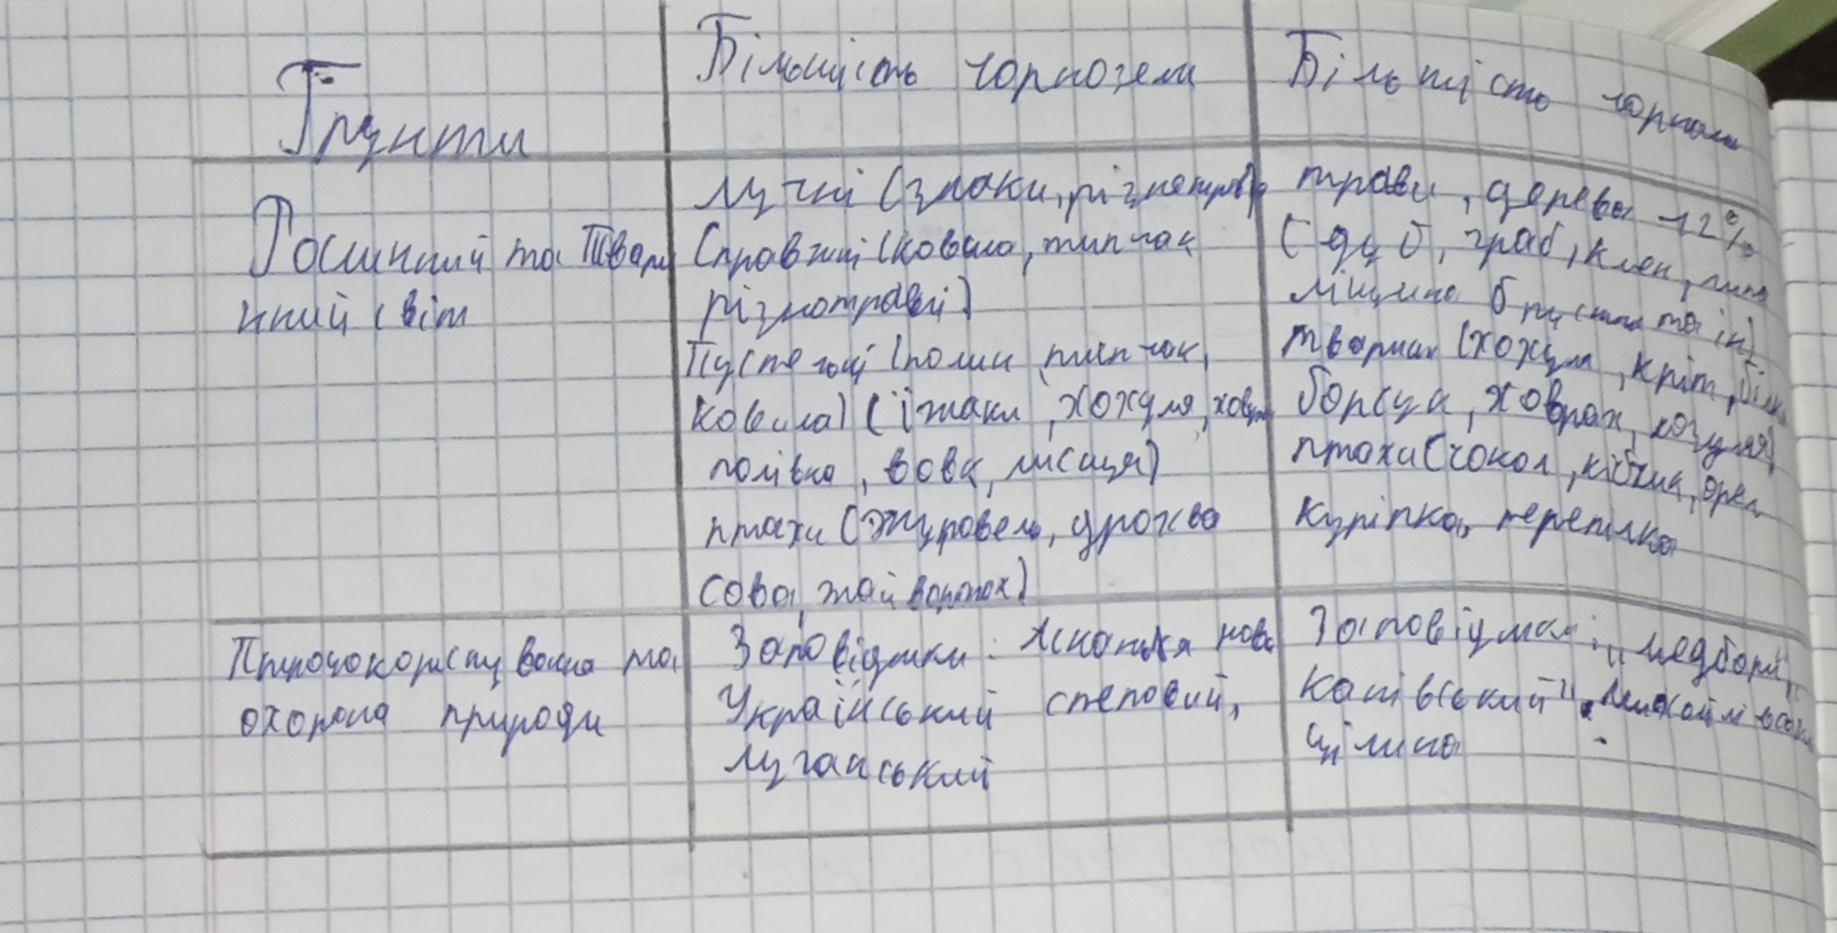 Ґрунти
Більшість чорноземи
Більшість чорноземи
Рослинний та Твари
нний світ
лучні (злаки, різнотравя)
Справжні (ковила, типчак
різнотравні)
Пустельні (полин, типчак,
ковила) (їжаки, хохуля, ховрах
полівка, вовк, лисиця)
птахи (журавель, дрохва
сова, жайворонок)
трави, дерева 12%
(дуб, граб, клен, липа
ліщина бруслина та ін)
тварини (хохуля, кріт, білка
борсук, ховрах, козуля)
птахи (сокол, кібчик, орел,
куріпка, перепілка
Природокористування та
охорона природи
Заповідники: Асканія нова
Український степовий,
Луганський
Заповідники: "Медбори",
Канівський", Михайлівська
цілина